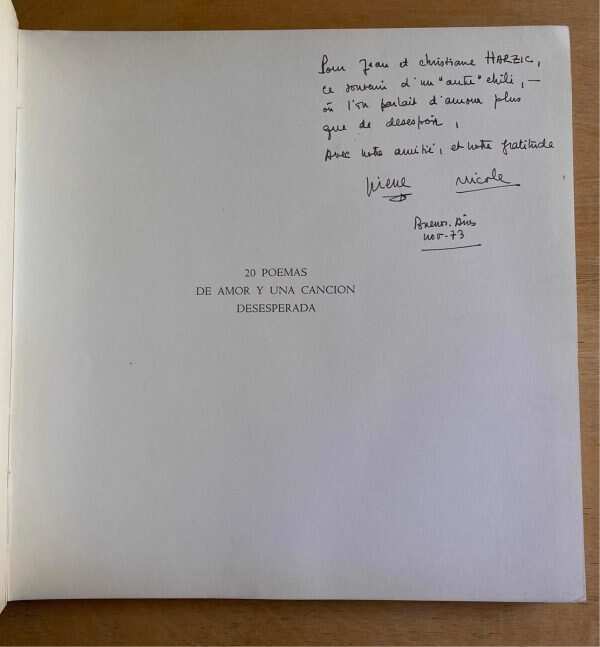 Pour Jean et christiane HARZIC,
ce souvenir d'un "autre" chili, —
où l'on parlait d'amour plus
que de desespoir,
Avec notre amitié, et notre gratitude
Nicole
Buenos. Aires
nov-73
20 POEMAS
DE AMOR Y UNA CANCION
DESESPERADA